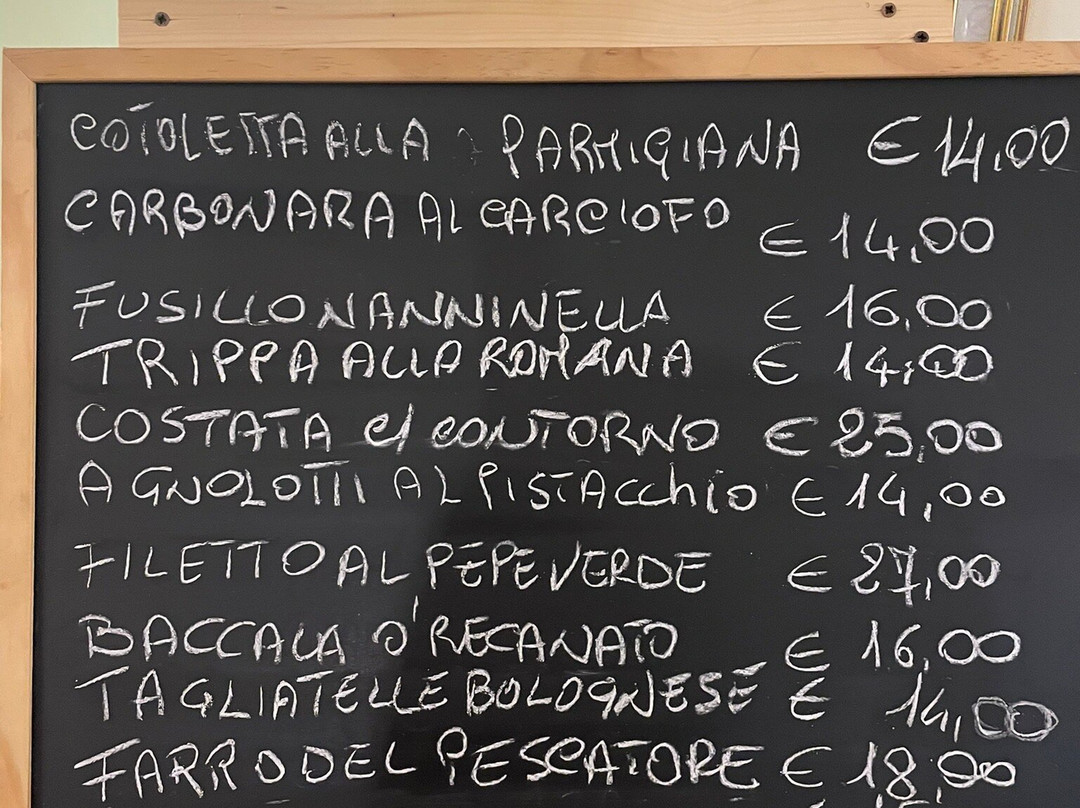 COTOLETTA ALLA PARMIGIANA € 14,00
CARBONARA AL CARCIOFO € 14,00
FUSILLO NANNINELLA € 16,00
TRIPPA ALLA ROMANA € 14,00
COSTATA C/ CONTORNO € 25,00
AGNOLOTTI AL PISTACChiO € 14,00
FILETTO AL PEPE VERDE € 27,00
BACCALA O' RECANATO € 16,00
TAGLIATELLE BOLOGNESE € 14,00
FARRO DEL PESCATORE € 18,00